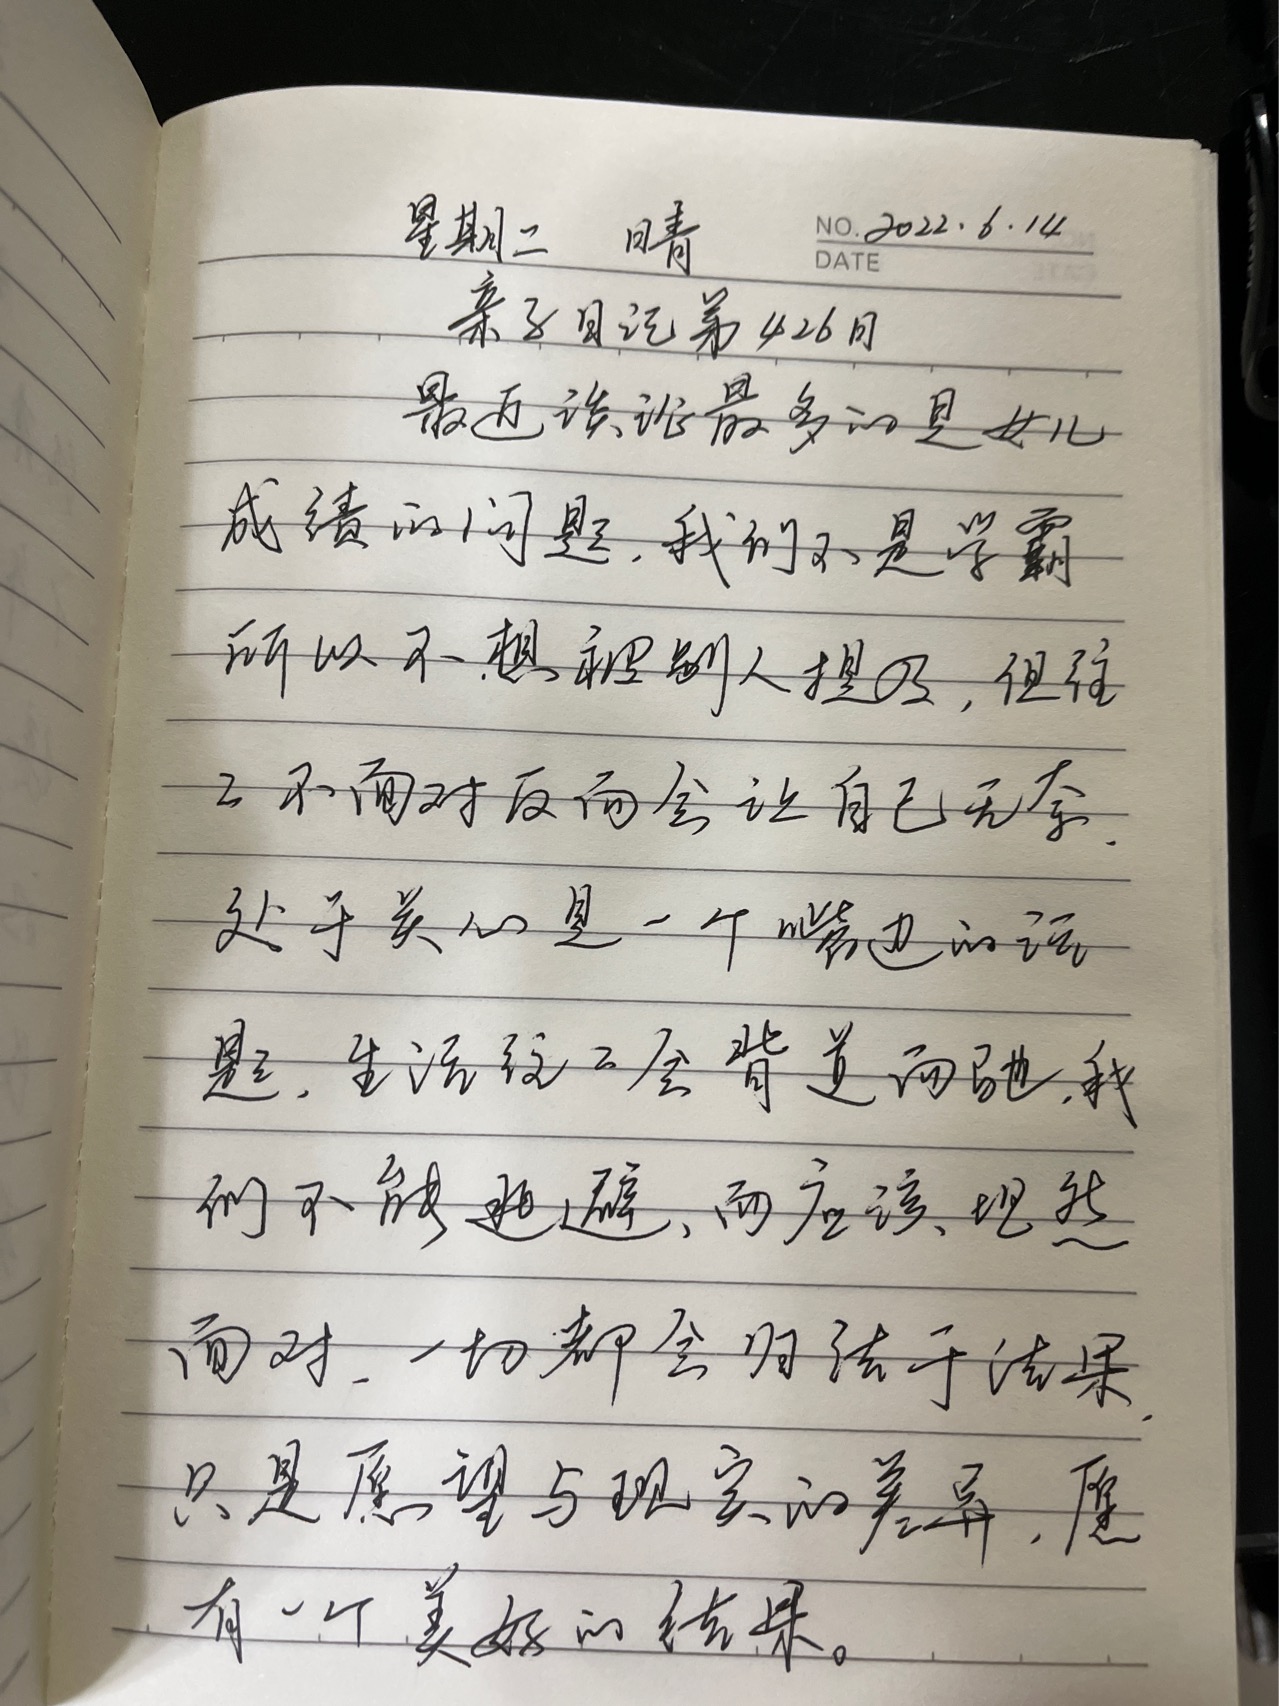 星期二 晴 NO. 2022.6.14
DATE
亲子日记第426日
最近谈论最多的是女儿
成绩的问题,我们不是学霸
所以不想被别人提及,但往
々不面对反而会让自己无奈,
处于关心是一个嘴边的话
题,生活往々会背道而驰,我
们不能逃避,而应该坦然
面对,一切都会归结于结果,
只是愿望与现实的差异,愿
有一个美好的结果。